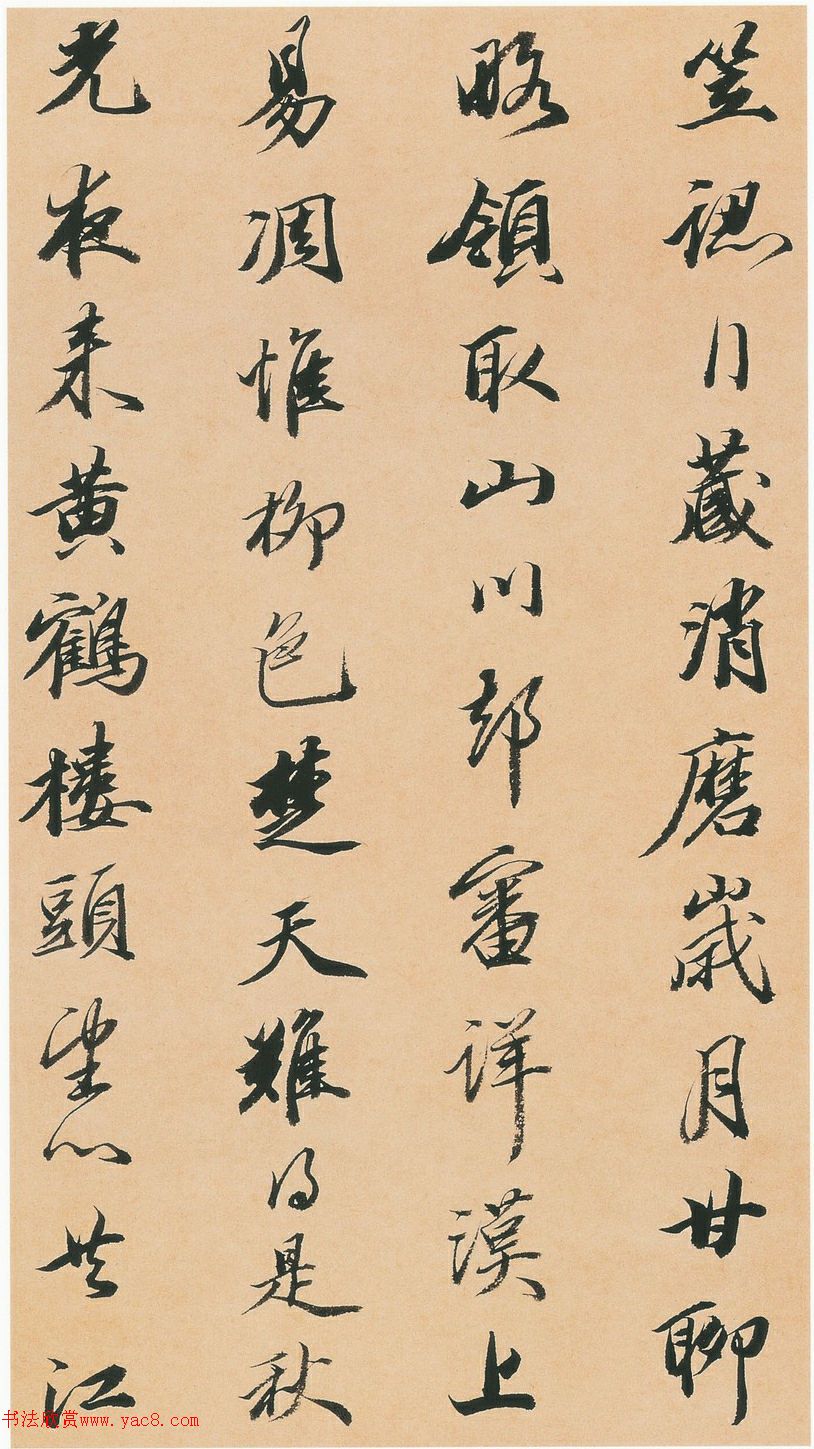 笠認行藏消磨歲月甘聊
略領取山川却審詳漢上
易凋惟柳色楚天難得是秋
光夜来黄鶴樓頭望心共江
书法欣赏www.yac8.com